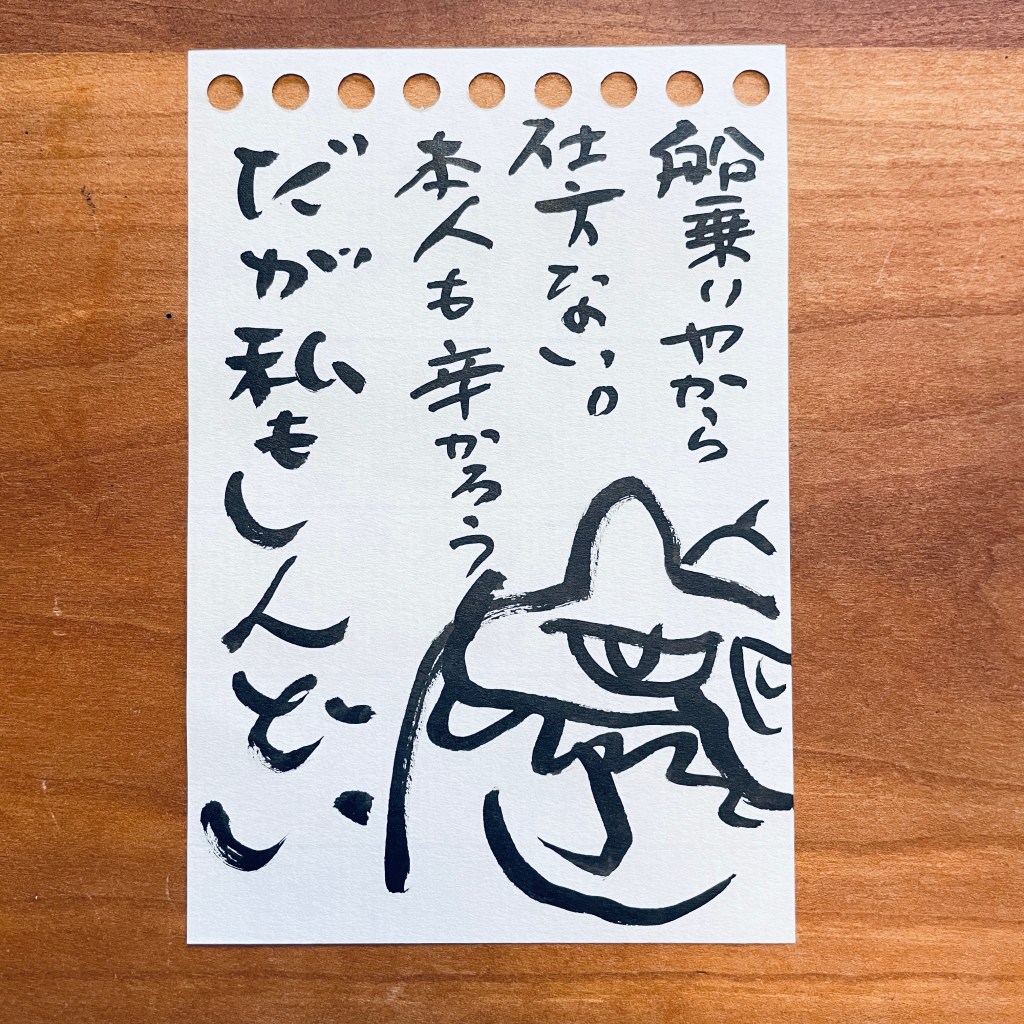 船乗りやから
仕方ない。
本人も辛かろう
だが私もしんどい